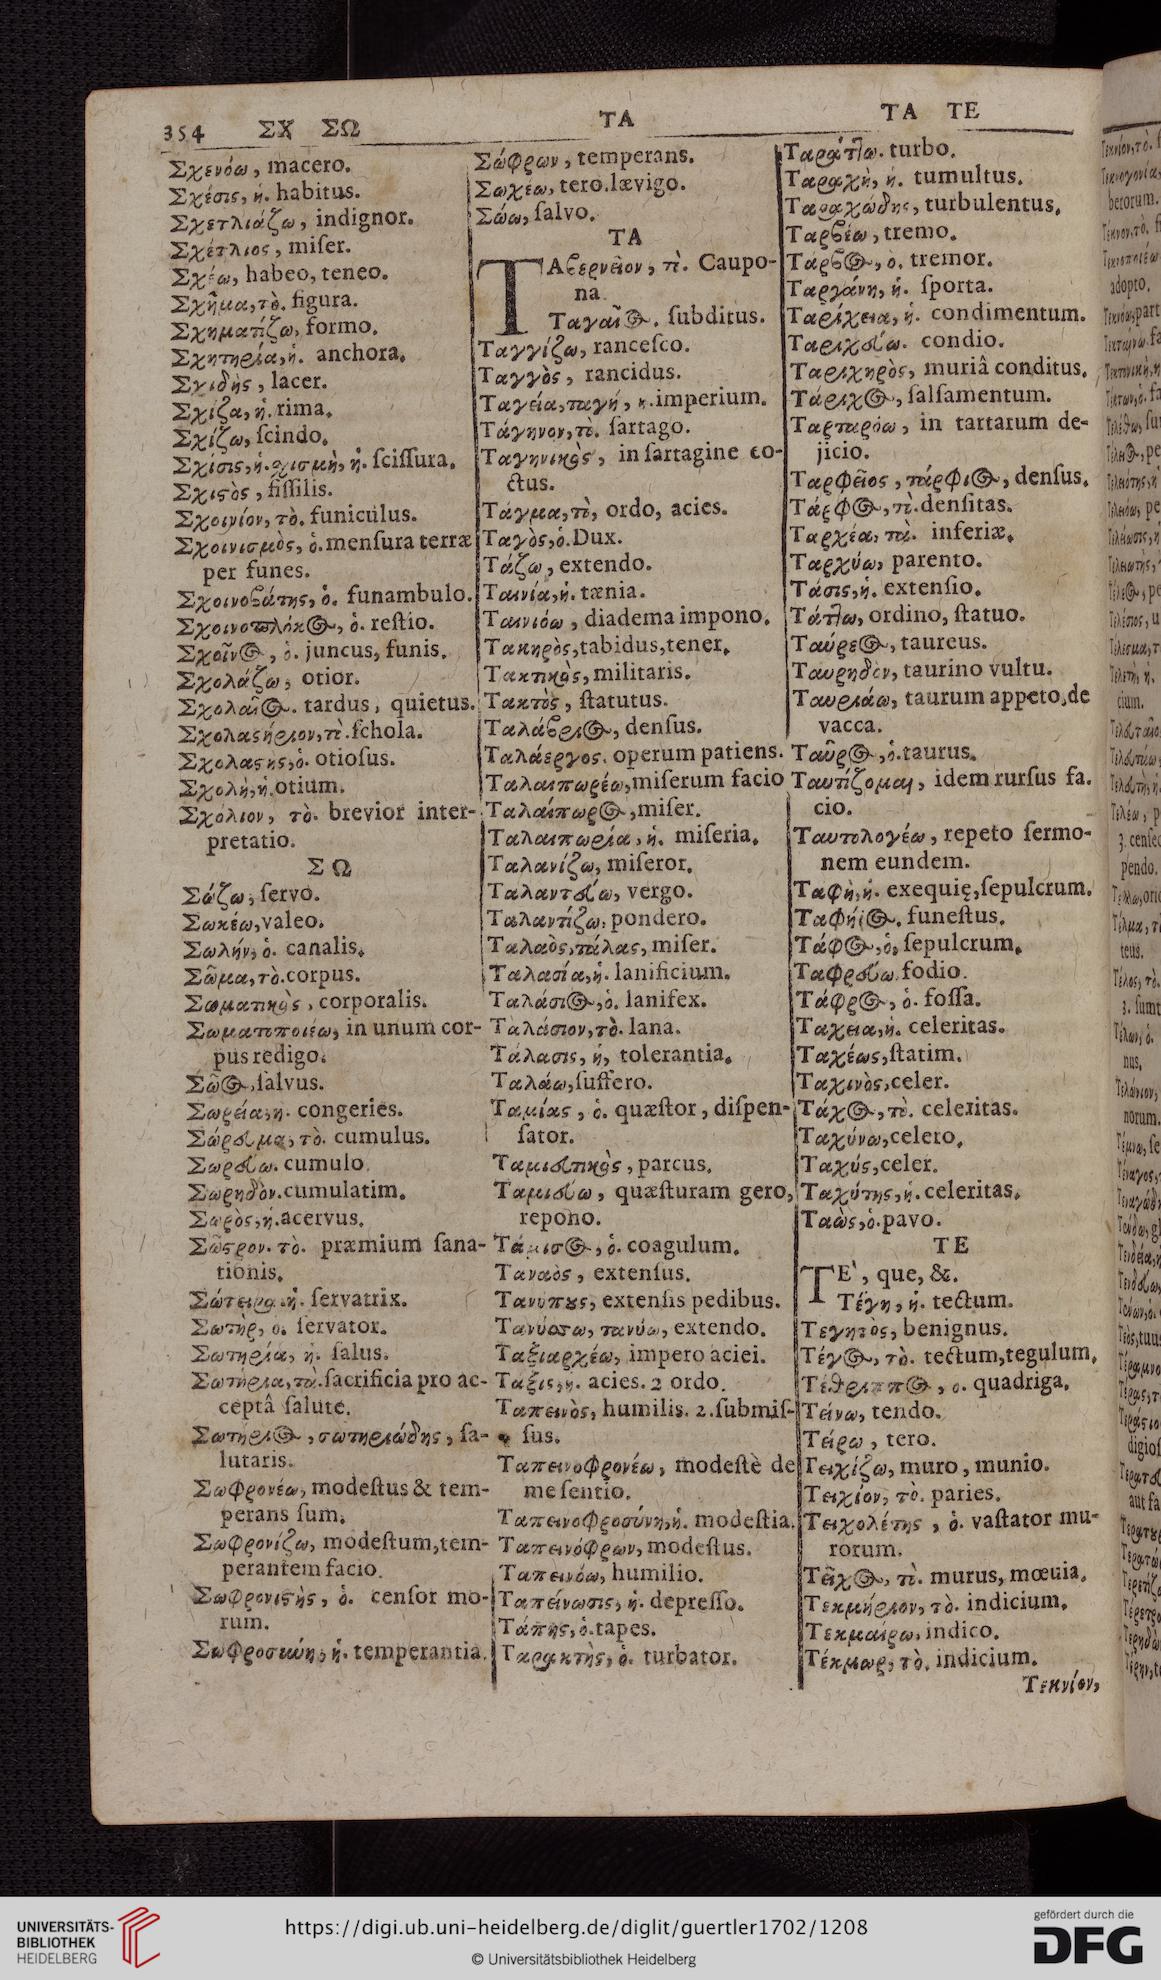 354 ΣΧ ΣΩ
ΤΑ
ΤΑ ΤΕ
Σχενόω, macero.
Σχέσις, ἡ. habitus.
Σχετλιάζω, indignor.
Σχέτλιος, miſer.
Σχέω, habeo, teneo.
Σχῆμα, τὸ. figura.
Σχηματίζω, formo.
Σχητηρία, ἡ. anchora.
Σχιδὴς, lacer.
Σχίζα, ἡ. rima.
Σχίζω, ſcindo.
Σχίσις, ἡ. χισμὴ, ἡ. ſciſſura.
Σχιςὸς, fiſſilis.
Σχοινίον, τὸ. funiculus.
Σχοινισμὸς, ὁ. menſura terræ
per funes.
Σχοινοβάτης, ὁ. funambulo.
Σχοινοπλόκος, ὁ. reſtio.
Σχοῖνος, ὁ. juncus, funis.
Σχολάζω, otior.
Σχολαῖος. tardus, quietus.
Σχολαςήριον, τὸ. ſchola.
Σχολαςὴς, ὁ. otioſus.
Σχολὴ, ἡ. otium.
Σχόλιον, τὸ. brevior inter-
pretatio.
ΣΩ
Σώζω, ſervo.
Σωκέω, valeo.
Σωλήν, ὁ. canalis.
Σῶμα, τὸ. corpus.
Σωματικὸς, corporalis.
Σωματοποιέω, in unum cor-
pus redigo.
Σῶος, ſalvus.
Σωρεία, ἡ. congeries.
Σώρευμα, τὸ. cumulus.
Σωρεύω. cumulo.
Σωρηδὸν. cumulatim.
Σωρὸς, ἡ. acervus.
Σῶςρον. τὸ. præmium ſana-
tionis.
Σώτειρα. ἡ. ſervatrix.
Σωτὴρ, ὁ. ſervator.
Σωτηρία, ἡ. ſalus.
Σωτήρια, τὰ. ſacrificia pro ac-
ceptâ ſalute.
Σωτήριος, σωτηριώδης, ſa-
lutaris.
Σωφρονέω, modeſtus & tem-
perans ſum.
Σωφρονίζω, modeſtum, tem-
perantem facio.
Σωφρονιςὴς, ὁ. cenſor mo-
rum.
Σωφροσύνη, ἡ. temperantia.
Σώφρων, temperans.
Σωχέω, tero. lævigo.
Σώω, ſalvo.
ΤΑ
ΤΑβερνεῖον, τὸ. Caupo-
na.
Ταγαῖος. ſubditus.
Ταγγίζω, ranceſco.
Ταγγὸς, rancidus.
Ταγεία, ταγή, ἡ. imperium.
Τάγηνον, τὸ. ſartago.
Ταγηνικὸς, in ſartagine co-
ctus.
Τάγμα, τὸ, ordo, acies.
Ταγὸς, ὁ. Dux.
Τάζω, extendo.
Ταινία, ἡ. tænia.
Ταινιόω, diadema impono.
Τακηρὸς, tabidus, tener.
Τακτικὸς, militaris.
Τακτὸς, ſtatutus.
Ταλάβριος, denſus.
Ταλάεργος. operum patiens.
Ταλαιπωρέω, miſerum facio
Ταλαίπωρος, miſer.
Ταλαιπωρία, ἡ. miſeria.
Ταλανίζω, miſeror.
Ταλαντεύω, vergo.
Ταλαντίζω, pondero.
Ταλαὸς, τάλας, miſer.
Ταλασία, ἡ. lanificium.
Ταλάσιος, ὁ. lanifex.
Ταλάσιον, τὸ. lana.
Τάλασις, ἡ, tolerantia.
Ταλάω, ſuffero.
Ταμίας, ὁ. quæſtor, diſpen-
ſator.
Ταμιευτικὸς, parcus.
Ταμιεύω, quæſturam gero,
repono.
Τάμισος, ὁ. coagulum.
Ταναὸς, extenſus.
Τανύπους, extenſis pedibus.
Τανύσσω, τανύω, extendo.
Ταξιαρχέω, impero aciei.
Τάξις, ἡ. acies. 2 ordo.
Ταπεινὸς, humilis. 2. ſubmiſ-
ſus.
Ταπεινοφρονέω, modeſtè de
me ſentio.
Ταπεινοφροσύνη, ἡ. modeſtia.
Ταπεινόφρων, modeſtus.
Ταπεινόω, humilio.
Ταπείνωσις, ἡ. depreſſo.
Τάπης, ὁ. tapes.
Ταρακτὴς, ὁ. turbator.
Ταράττω. turbo.
Ταραχὴ, ἡ. tumultus.
Ταραχώδης, turbulentus.
Ταρβέω, tremo.
Τάρβος, ὁ. tremor.
Ταργάνη, ἡ. ſporta.
Ταρίχεια, ἡ. condimentum.
Ταριχεύω. condio.
Ταριχηρὸς, muriâ conditus.
Τάριχος, ſalſamentum.
Ταρταρόω, in tartarum de-
jicio.
Ταρφεῖος, τάρφιος, denſus.
Τάρφος, τὸ. denſitas.
Ταρχέα, τὰ. inferiæ.
Ταρχύω, parento.
Τάσις, ἡ. extenſio.
Τάττω, ordino, ſtatuo.
Ταύρεος, taureus.
Ταυρηδὸν, taurino vultu.
Ταυριάω, taurum appeto, de
vacca.
Ταῦρος, ὁ. taurus.
Ταυτίζομαι, idem rurſus fa.
cio.
Ταυτολογέω, repeto ſermo-
nem eundem.
Ταφὴ, ἡ. exequię, ſepulcrum.
Ταφήϊος. funeſtus.
Τάφος, ὁ, ſepulcrum.
Ταφρεύω. fodio.
Τάφρος, ὁ. foſſa.
Ταχεια, ἡ. celeritas.
Ταχέως, ſtatim.
Ταχινὸς, celer.
Τάχος, τὸ. celeritas.
Ταχύνω, celero.
Ταχύς, celer.
Ταχύτης, ἡ. celeritas.
Ταὼς, ὁ. pavo.
ΤΕ
ΤΕ', que, &.
Τέγη, ἡ. tectum.
Τεγητὸς, benignus.
Τέγος, τὸ. tectum, tegulum.
Τέθριππος, ὁ. quadriga.
Τείνω, tendo.
Τείρω, tero.
Τειχίζω, muro, munio.
Τειχίον, τὸ. paries.
Τειχολέτης, ὁ. vaſtator mu-
rorum.
Τεῖχος, τὸ. murus, mœuia.
Τεκμήριον, τὸ. indicium.
Τεκμαίρω, indico.
Τέκμωρ, τὸ. indicium.
Τεκνίον,
UNIVERSITÄTS-
BIBLIOTHEK
HEIDELBERG
https://digi.ub.uni-heidelberg.de/diglit/guertler1702/1208
© Universitätsbibliothek Heidelberg
gefördert durch die
DFG